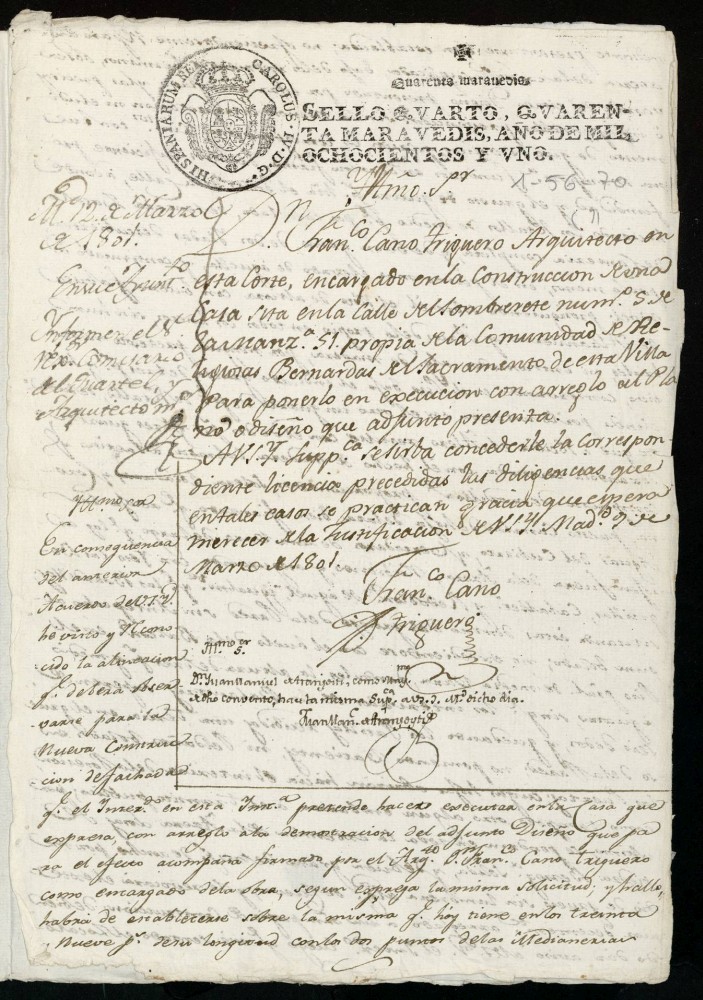 HISPANIARUM REX CAROLUS IV D G
Quarenta maravedis
SELLO QVARTO, QVAREN-
TA MARAVEDIS, AÑO DE MIL
OCHOCIENTOS Y VNO.
Yllmo. Sr
1-56-70
M.d 12 de Marzo
de 1801.
Informen el Sr
Comisario
del Quartel, y
Arquitecto mr
Dn Fran.co Cano Triguero Arquitecto en
esta Corte, encargado en la Construccion de una
Casa sita en la Calle del Sombrerete num.o 5. de
la Manz.a 51. propia de la Comunidad de Re-
ligiosas Bernardas del Sacramento de esta Villa
Para ponerlo en execucion con arreglo al Pla
no, o diseño que adjunto presenta.
A V.S.Y. Supp.ca se sirba concederle la Correspon-
diente licencia, precedidas las diligencias, que
en tales casos se practican gracia que espera
merecer de la Justificacion de V.S.Y. Mad.d 9 de
Marzo de 1801.
Fran.co Cano
Triguero
Yllmo Sor
En consequencia
del anterior
Acuerdo de V.S.Y.
he visto y recono
cido la alineacion
q.e debera obser
varse para la
Nueva Construc
cion de fachada
Yllmo Sr.
D.n Juan Manuel de Aranjosti, como May.mo
de dho convento, hace la misma Sup.ca a V.S.I. M.d dicho dia.
Juan Man.l de Aranjosti
q.e el Interdo en esta Inst.a pretende hacer executar en la Casa que
expresa, con arreglo a la demostracion del adjunto Diseño que pa
ra el efecto acompaña firmado por el Arq.to D.n Fran.co Cano Triguero
como encargado de la obra, segun expresa la misma solicitud; y hallo,
habrá de establecerse sobre la misma q.e hoy tiene en los treinta
y Nueve p.s de su longitud con los dos puntos de las Medianerias